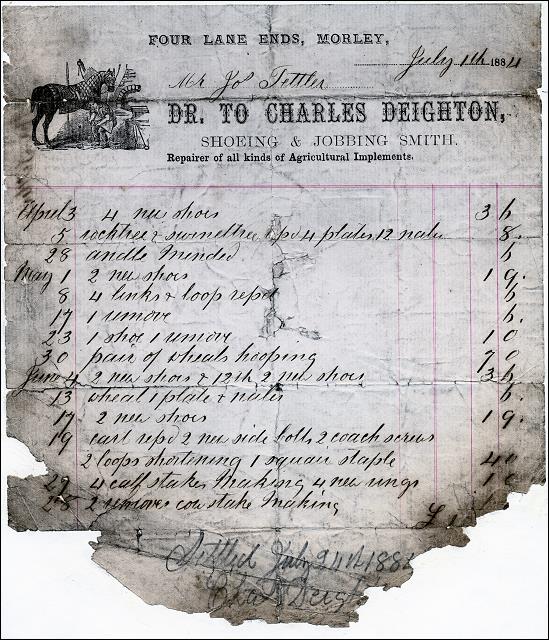 FOUR LANE ENDS, MORLEY,
July 1th 1884
Mr Jos Tettler
DR. TO CHARLES DEIGHTON,
SHOEING & JOBBING SMITH.
Repairer of all kinds of Agricultural Implements.
April 3 4 new shoes 3 6
5 & swineltree 4 plates 12 nales 8
28 andle mended 6
May 1 2 new shoes 1 9
8 4 links & loop repd 6
17 1 remove 6
23 1 shoe 1 remove 1 0
30 pair of wheals hooping 7 0
June 4 2 new shoes & 12th 2 new shoes 3 6
13 wheal 1 plate & nales 6
17 2 new shoes 1 9
19 cart repd 2 new side bolts 2 coach screws
2 loops shortening 1 squair staple 4
4 calf stakes making 4 new rings 1
28 2 removes cow stake making
£
Settled July 24th 188
Chas Deigh